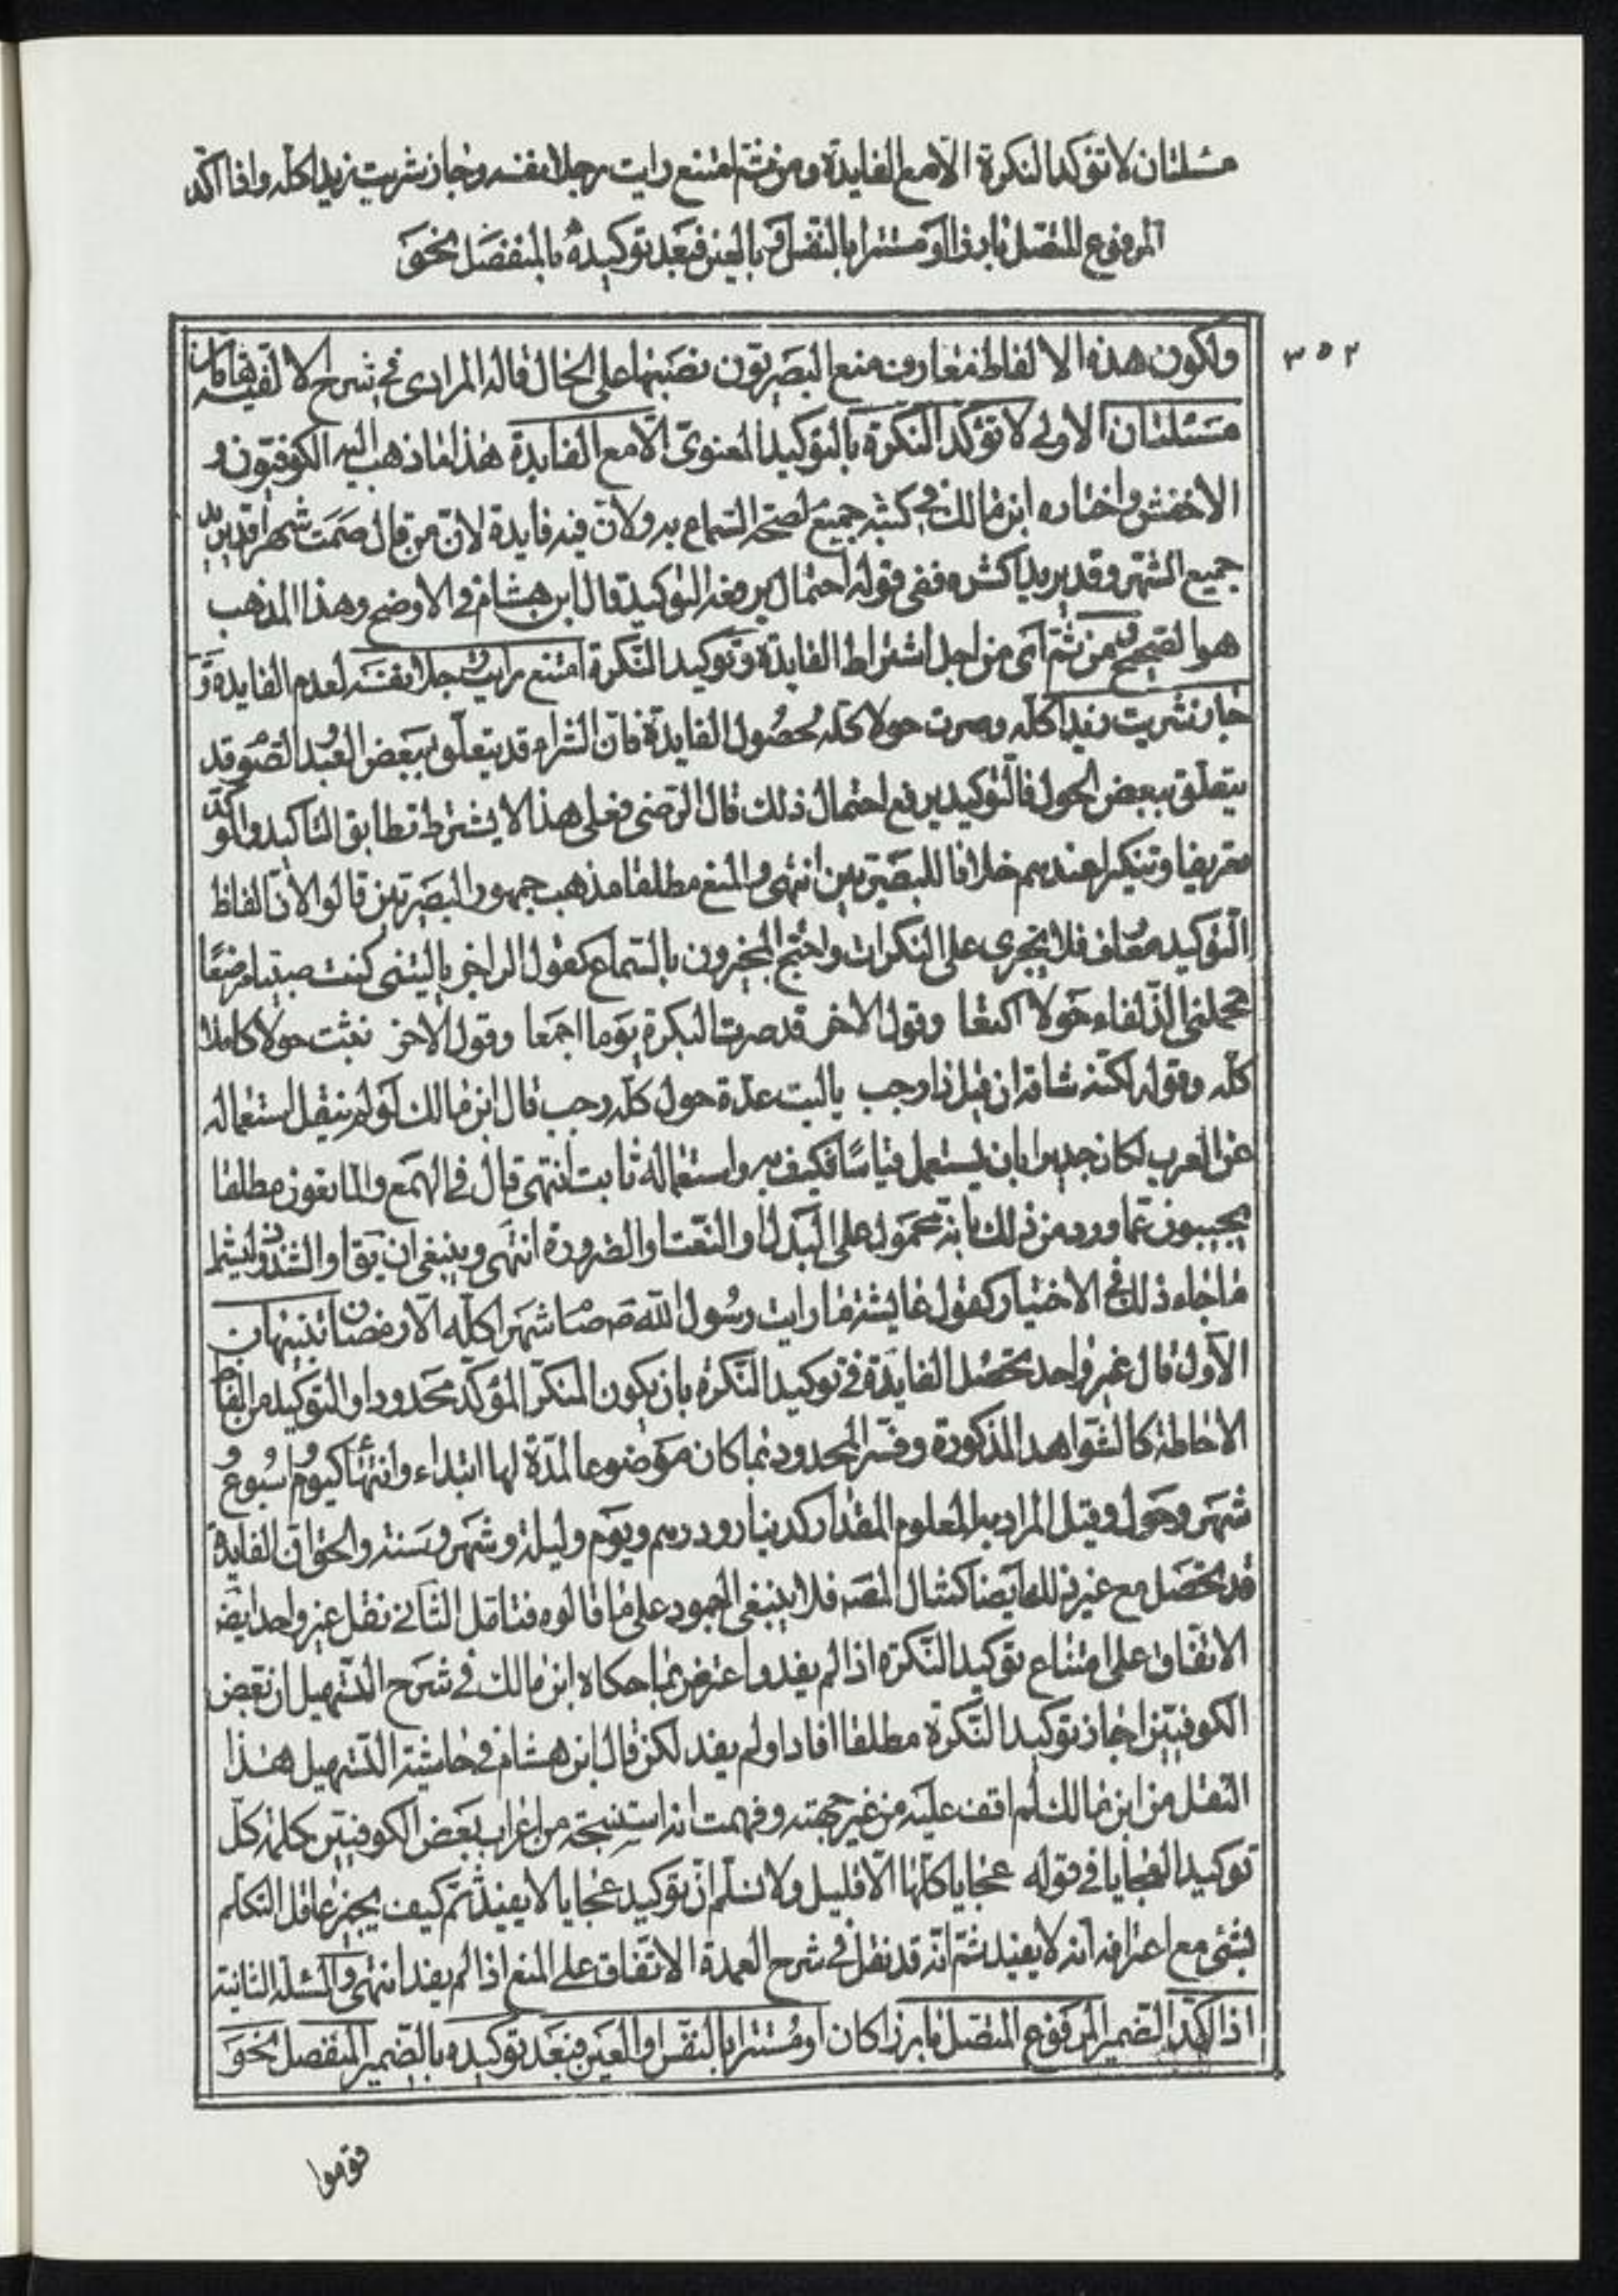 مسئلتان لا تؤكد النكرة الا مع الفايدة ومن ثم امتنع رايت رجلا نفسه وجاز اشتريت زيدا كله واذا اكد
المرفوع المتصل بارزا او مستترا بالنفس او بالعين فبعد توكيده بالمنفصل نحو
٣٥٢
ولكون هذه الالفاظ معارف منع البصريون نصبها على الحال قاله المرادى فى شرح الالفيه هاتان
مسئلتان الاولى لا تؤكد النكرة بالتوكيد المعنوى الا مع الفايدة هذا ما ذهب اليه الكوفيون و
الاخفش واختاره ابن مالك فى كتبه جميع لصحة السماع به ولان فيه فايدة لان من قال صمت شهرا قد يريد
جميع الشهر وقد يريد اكثره ففى قوله احتمال يرفعه التوكيد قال ابن هشام فى الاوضح وهذا المذهب
هو الصحيح ومن ثم اى من اجل اشتراط الفايدة فى توكيد النكرة امتنع رايت رجلا نفسه لعدم الفايدة و
جاز اشتريت زيدا كله وصرت حولا كله لحصول الفايدة فان الشراء قد يتعلق ببعض العبد والصوم قد
يتعلق ببعض الحول فالتوكيد يرفع احتمال ذلك قال الرضى فعلى هذا لا يشترط تطابق التاكيد والمؤكد
تعريفا وتنكيرا عندهم خلافا للبصريين انتهى والمنع مطلقا مذهب جمهور البصريين قالوا لان الفاظ
التوكيد معارف فلا تجرى على النكرات واحتج المجيزون بالسماع كقول الراجز يا ليتنى كنت صبيا مرضعا
تحملنى الذلفاء حولا اكتعا وقول الاخر قد صرت البكرة يوما اجمعا وقول الاخر نمت حولا كاملا
كله وقوله لكنه شاقه ان قيل ذا رجب يا ليت عدة حول كله رجب قال ابن مالك لو لم ينقل استعماله
عن العرب لكان جديرا بان يستعمل قياسا فكيف به واستعماله ثابت انتهى قال فى الهمع والمانعون مطلقا
يجيبون عما ورد من ذلك بانه محمول على البدل او النعت او الضرورة انتهى وينبغى ان يق او الشذوذ ليشمل
ما جاء ذلك فى الاختيار كقول عايشة ما رايت رسول الله ص صام شهرا كله الا رمضان تنبيهان
الاول قال غير واحد تحصل الفايدة فى توكيد النكرة بان يكون المنكر المؤكد محدودا والتوكيد من الفاظ
الاحاطة كالشواهد المذكورة وفسر المحدود بما كان موضوعا لمدة لها ابتداء وانتهاء كيوم واسبوع و
شهر وحول وقيل المراد به المعلوم المقدار كدينار ودرهم ويوم وليلة وشهر وسنة والحق ان الفايدة
قد تحصل مع غير ذلك ايضا كمثال المص فلا ينبغى الجمود على ما قالوه فتامل الثانى نقل غير واحد ايض
الاتفاق على امتناع توكيد النكرة اذا لم يفد واعترض بما حكاه ابن مالك فى شرح التسهيل ان بعض
الكوفيين اجاز توكيد النكرة مطلقا افاد او لم يفد لكن قال ابن هشام فى حاشية التسهيل هذا
النقل من ابن مالك لم اقف عليه من غير جهته وفهمت انه استنتجه من اعراب بعض الكوفيين كلمة كل
توكيدا لعجايا فى قوله عجايا كلها الا قليل ولا نسلم ان توكيد عجايا لا يفيد ثم كيف يجيز عاقل التكلم
بشئ مع اعترافه انه لا يفيد ثم انه قد نقل فى شرح العمدة الاتفاق على المنع اذا لم يفد انتهى والمسئلة الثانية
اذا اكد الضمير المرفوع المتصل بارزا كان او مستترا بالنفس او العين فبعد توكيده بالضمير المنفصل نحو
قوموا